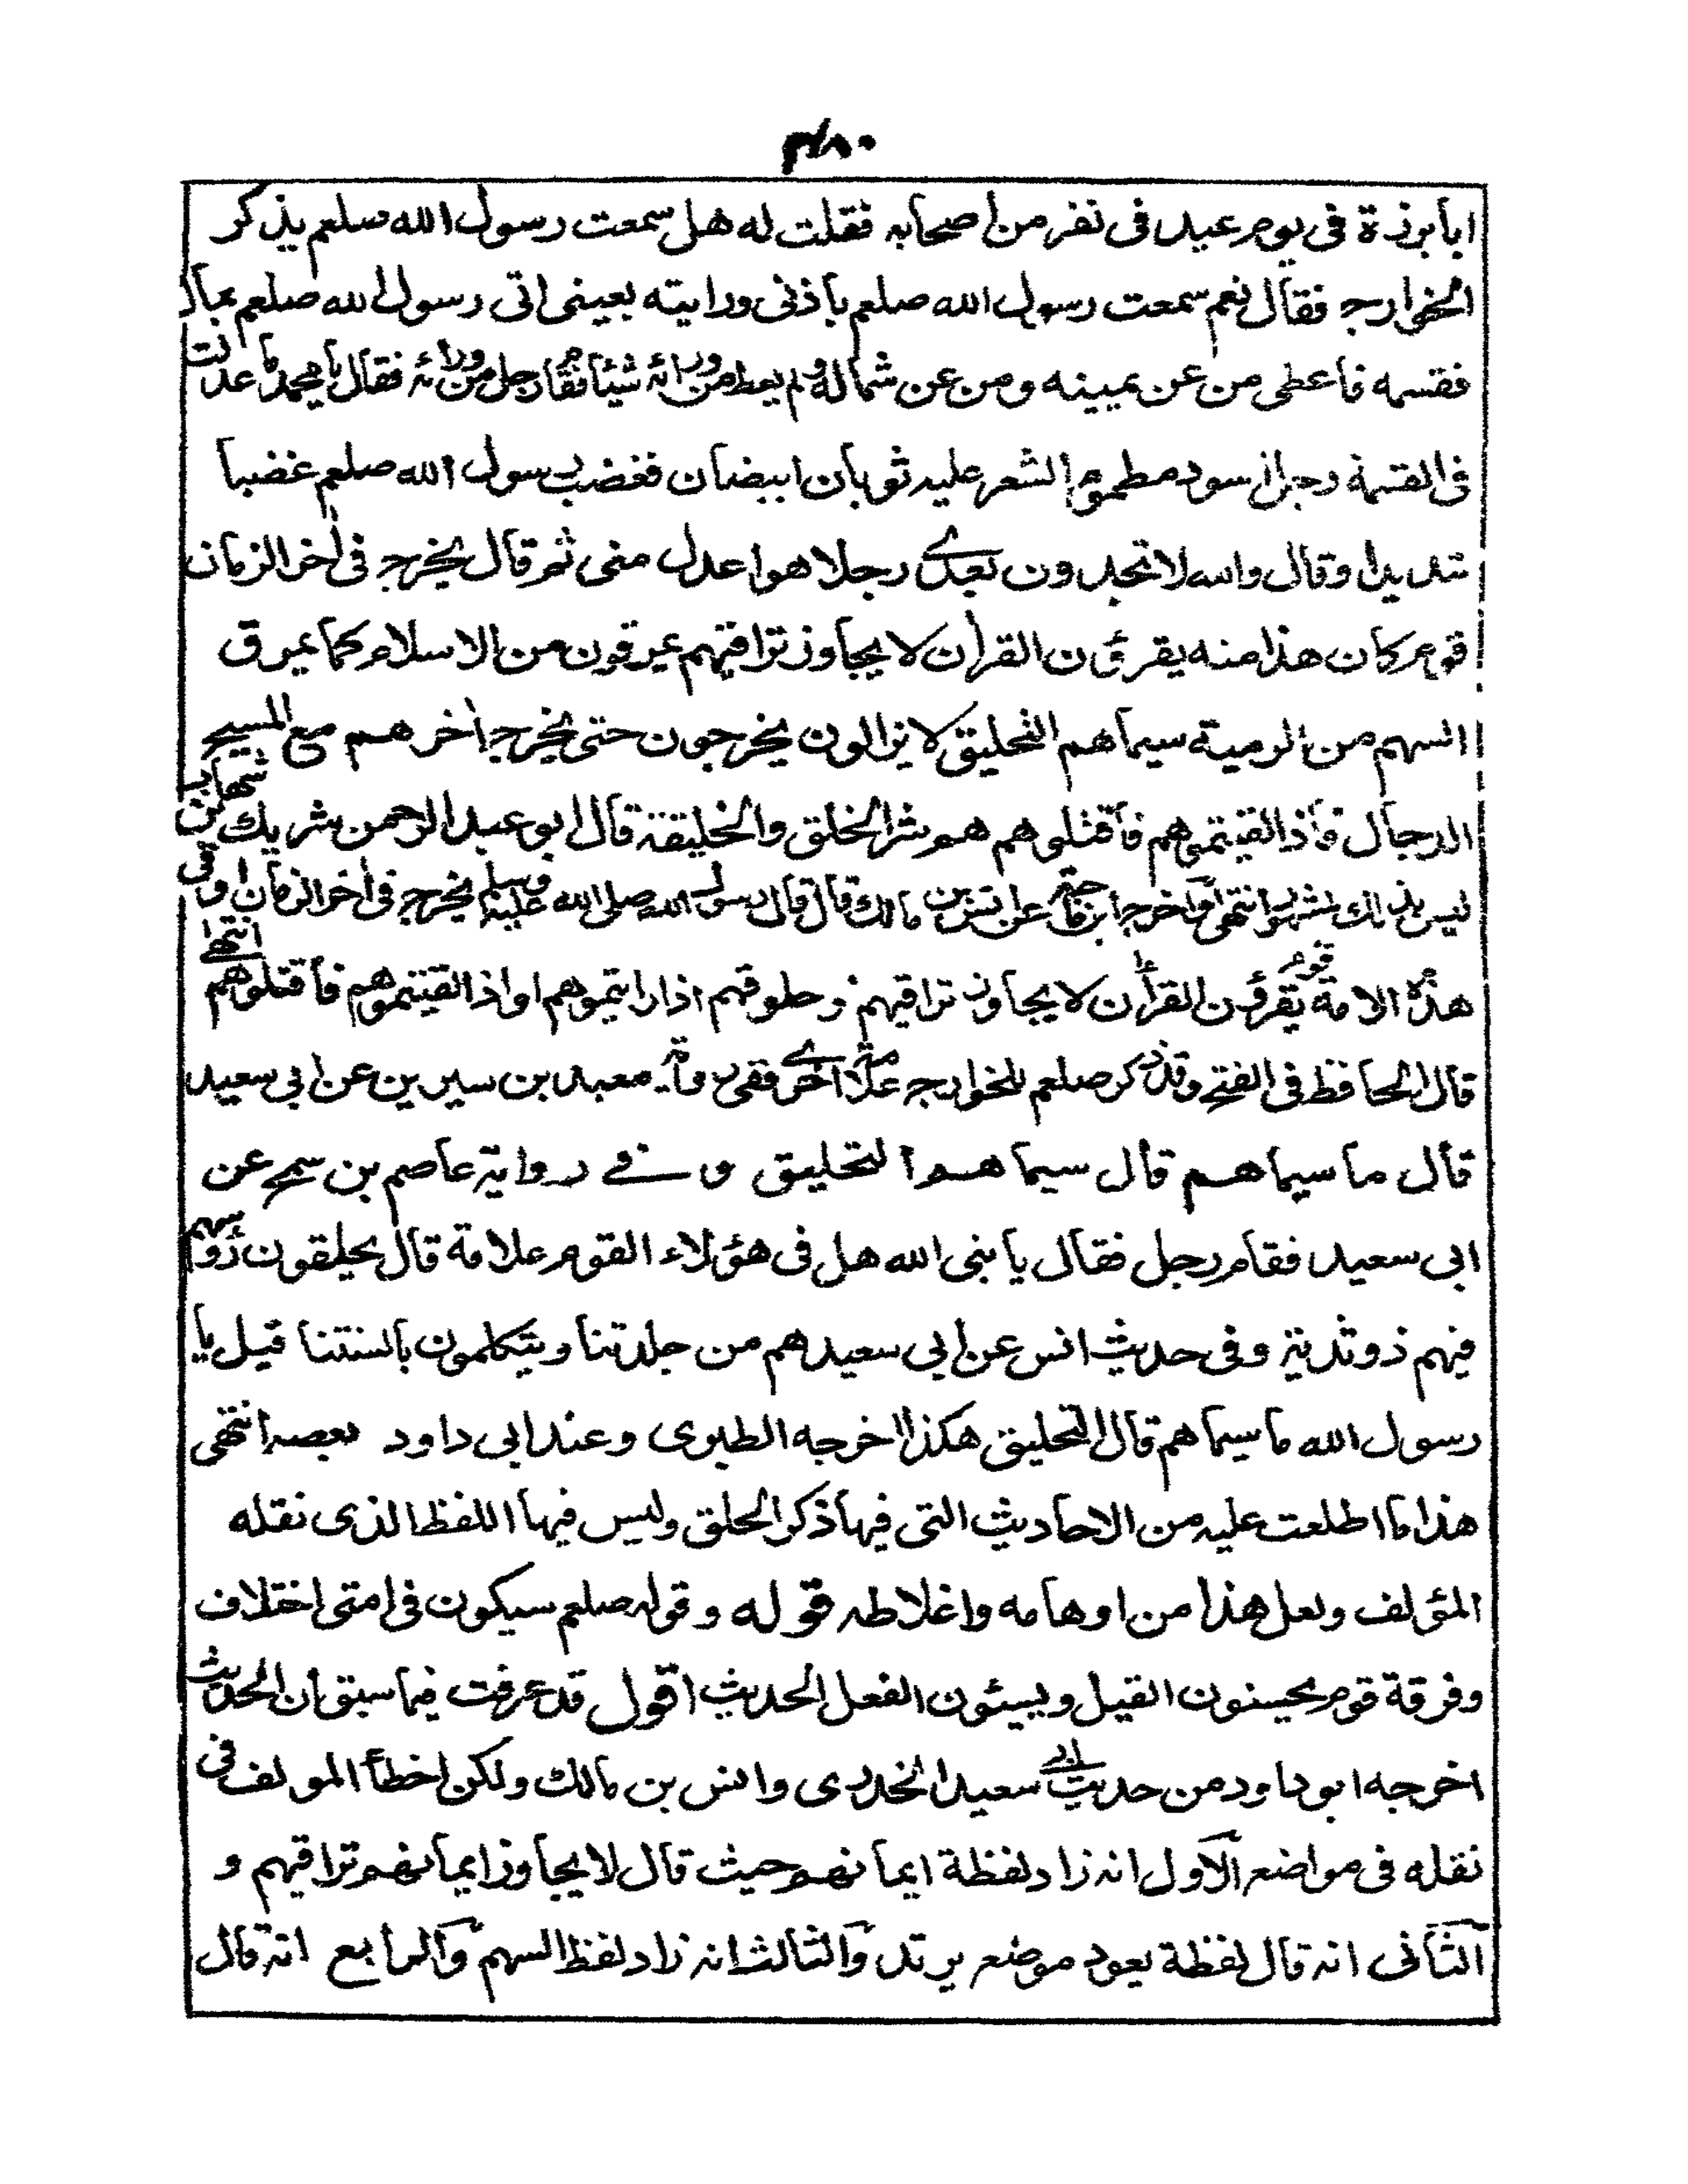 ٤٨٠
ابا برزة فى يوم عيد فى نفر من اصحابه فقلت له هل سمعت رسول الله صلعم يذكر
الخوارج فقال نعم سمعت رسول الله صلعم باذنى ورايته بعينى اتى رسول الله صلعم بمال
فقسمه فاعطى من عن يمينه ومن عن شماله ولم يعط من ورائه شيئا فقام رجل من ورائه فقال يا محمد ما عدلت
فى القسمة رجل اسود مطموم الشعر عليه ثوبان ابيضان فغضب رسول الله صلعم غضبا
شديدا وقال والله لا تجدون بعدى رجلا هو اعدل منى ثم قال يخرج فى اخر الزمان
قوم كان هذا منه يقرؤن القرأن لا يجاوز تراقيهم يمرقون من الاسلام كما يمرق
السهم من الرمية سيماهم التحليق لا يزالون يخرجون حتى يخرج اخرهم مع المسيح
الدجال فاذا لقيتموهم فاقتلوهم هم شر الخلق والخليقة قال ابو عبد الرحمن شريك بن شهاب
ليس بذلك المشهور انتهى واخرج ابن ماجة عن انس بن مالك قال قال رسول الله صلى الله عليه وسلم يخرج فى اخر الزمان او فى
هذه الامة قوم يقرؤن القرأن لا يجاوز تراقيهم او حلوقهم اذا رايتموهم او اذا لقيتموهم فاقتلوهم انتهى
قال الحافظ فى الفتح وقد ذكر صلعم للخوارج علامة اخرى ففى رواية معبد بن سيرين عن ابى سعيد
قال ما سيماهم قال سيماهم التحليق وفى رواية عاصم بن سمح عن
ابى سعيد فقام رجل فقال يا نبى الله هل فى هؤلاء القوم علامة قال يحلقون رؤسهم
فيهم ذو ثدية وفى حديث انس عن ابى سعيد هم من جلدتنا ويتكلمون بالسنتنا قيل يا
رسول الله ما سيماهم قال التحليق هكذا اخرجه الطبرى وعند ابى داود بعضه انتهى
هذا ما اطلعت عليه من الاحاديث التى فيها ذكر الحلق وليس فيها اللفظ الذى نقله
المؤلف ولعل هذا من اوهامه واغلاطه قوله وقوله صلعم سيكون فى امتى اختلاف
وفرقة قوم يحسنون القيل ويسيئون الفعل الحديث اقول قد عرفت فيما سبق ان الحديث
اخرجه ابو داود من حديث ابى سعيد الخدرى وانس بن مالك ولكن اخطأ المولف فى
نقله فى مواضع الاول انه زاد لفظة ايمانهم حيث قال لا يجاوز ايمانهم تراقيهم و
الثانى انه قال لفظة يعود موضع يرتد والثالث انه زاد لفظ السهم والرابع انه قال